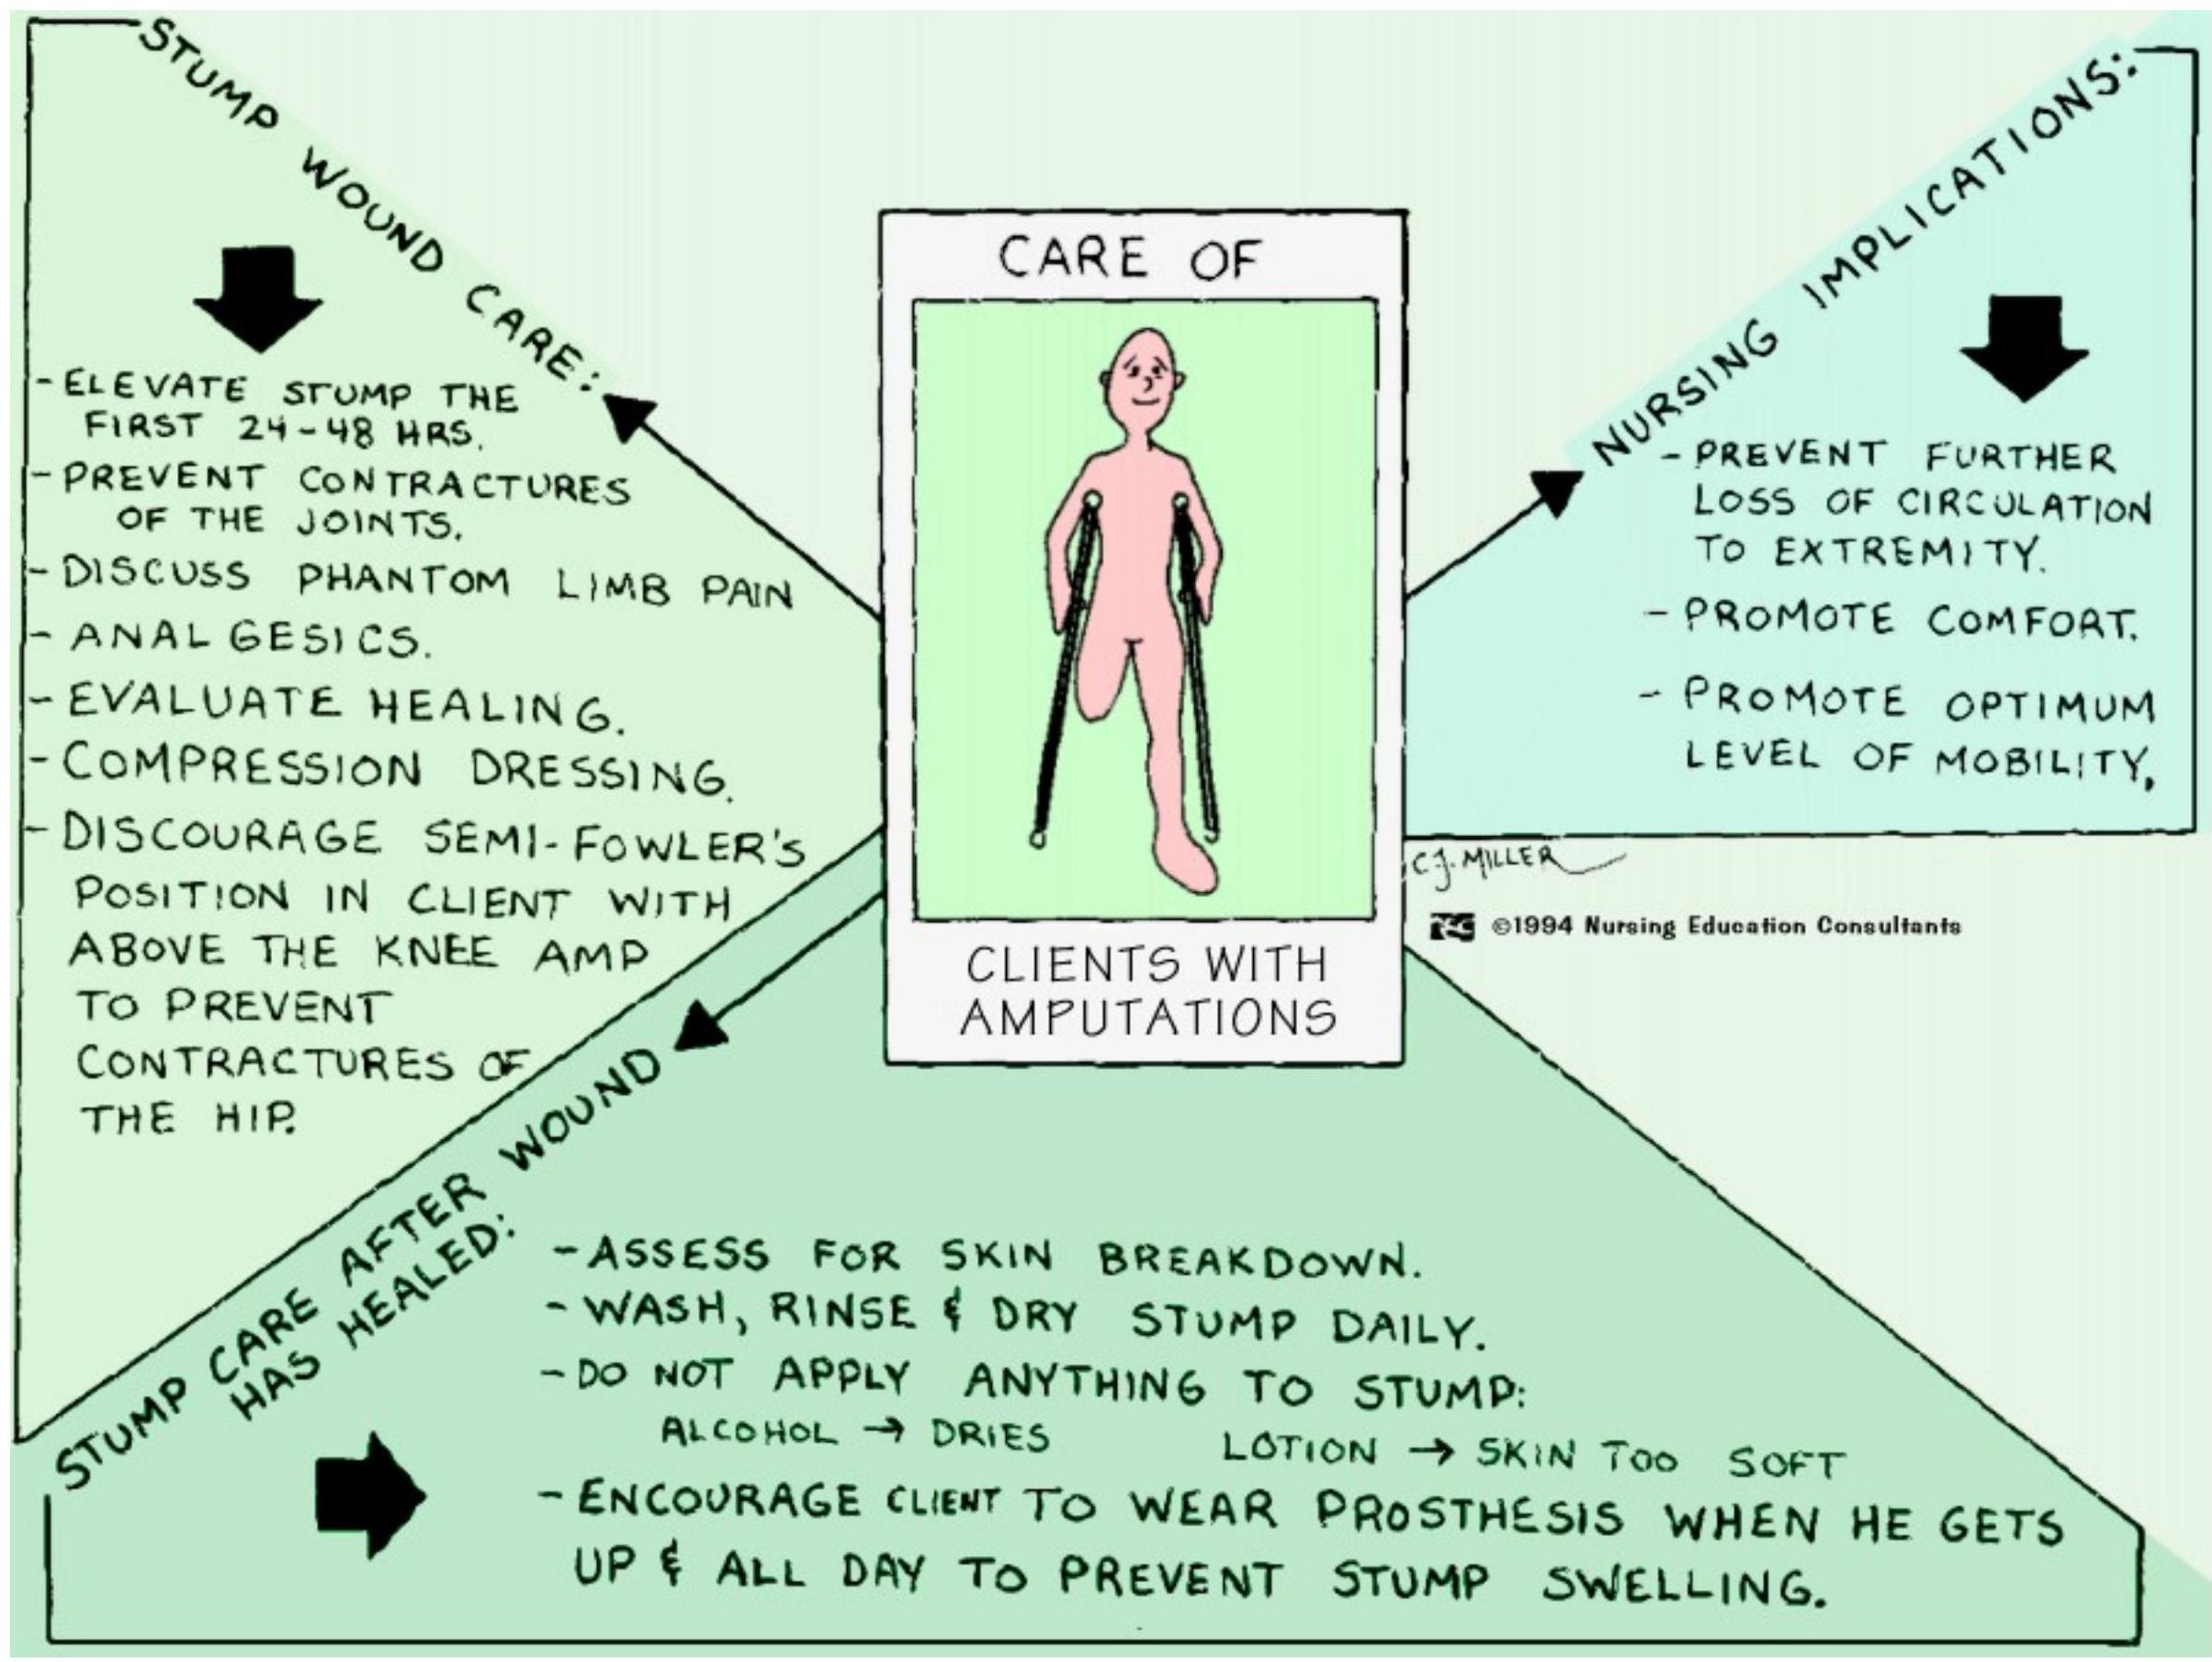 STUMP WOUND CARE:
- ELEVATE STUMP THE
FIRST 24-48 HRS.
- PREVENT CONTRACTURES
OF THE JOINTS.
- DISCUSS PHANTOM LIMB PAIN
- ANALGESICS.
- EVALUATE HEALING.
- COMPRESSION DRESSING.
- DISCOURAGE SEMI-FOWLER'S
POSITION IN CLIENT WITH
ABOVE THE KNEE AMP
TO PREVENT
CONTRACTURES OF
THE HIP.
CARE OF
CLIENTS WITH
AMPUTATIONS
NURSING IMPLICATIONS:
- PREVENT FURTHER
LOSS OF CIRCULATION
TO EXTREMITY.
- PROMOTE COMFORT.
- PROMOTE OPTIMUM
LEVEL OF MOBILITY,
C.J. MILLER
©1994 Nursing Education Consultants
STUMP CARE AFTER WOUND
HAS HEALED:
- ASSESS FOR SKIN BREAKDOWN.
- WASH, RINSE & DRY STUMP DAILY.
- DO NOT APPLY ANYTHING TO STUMP:
ALCOHOL → DRIES LOTION → SKIN TOO SOFT
- ENCOURAGE CLIENT TO WEAR PROSTHESIS WHEN HE GETS
UP & ALL DAY TO PREVENT STUMP SWELLING.